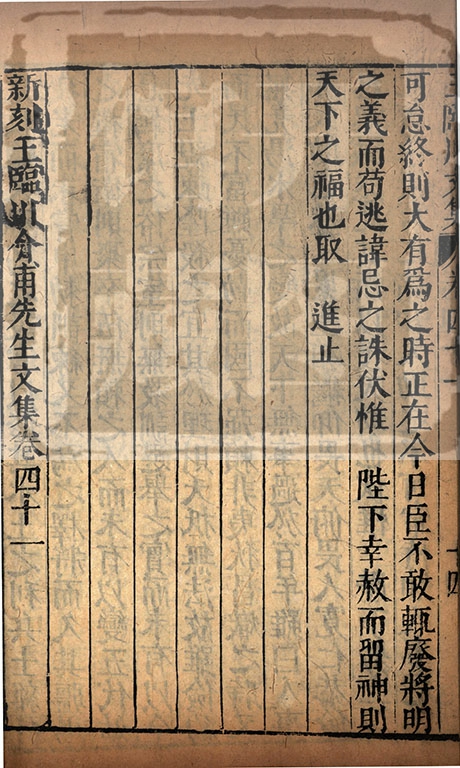 可怠終則大有爲之時正在今日臣不敢輒廢將明
之義而苟逃諱忌之誅伏惟 陛下幸赦而留神則
天下之福也取 進止
新刻王臨川介甫先生文集卷四十一